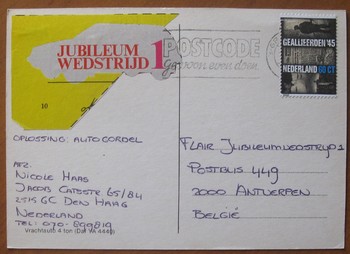 JUBILEUM 1
WEDSTRIJD
POSTCODE
Gewoon even doen.
GEALLIEERDEN '45
NEDERLAND 60 CT
10
OPLOSSING: AUTOGORDEL
AFZ.
NICOLE HAAG
JACOB CATSSTR 65/84
2515 GC DEN HAAG
NEDERLAND
TEL: 070-899819
Vrachtauto 4 ton (Daf YA 4440)
FLAIR JUBILEUMWEDSTRIJD 1
POSTBUS 449
2000 ANTWERPEN
BELGIË